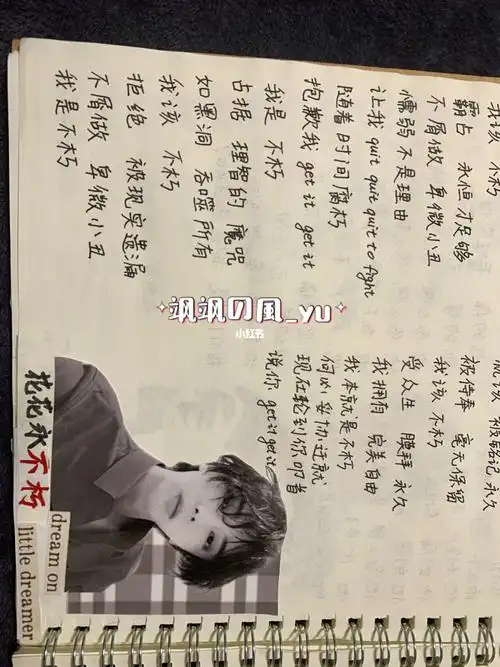 我该 不朽
霸占 永恒才足够
不屑做 卑微小丑
懦弱 不是理由
让我 quit quit quit to fight
随着时间腐朽
抱歉我 get it get it
我是 不朽
占据 理智的 魔咒
如黑洞 吞噬所有
我该 不朽
拒绝 被现实遗漏
不屑做 卑微小丑
我是 不朽
被铭记 永久
被侍奉 毫无保留
我该 不朽
受众生 膜拜 永久
我拥有 完美自由
我本就是不朽
何必妥协迁就
现在轮到你叩首
说你 get it get it
花花永不朽
dream on
little dreamer
飒飒の風_yu
小红书